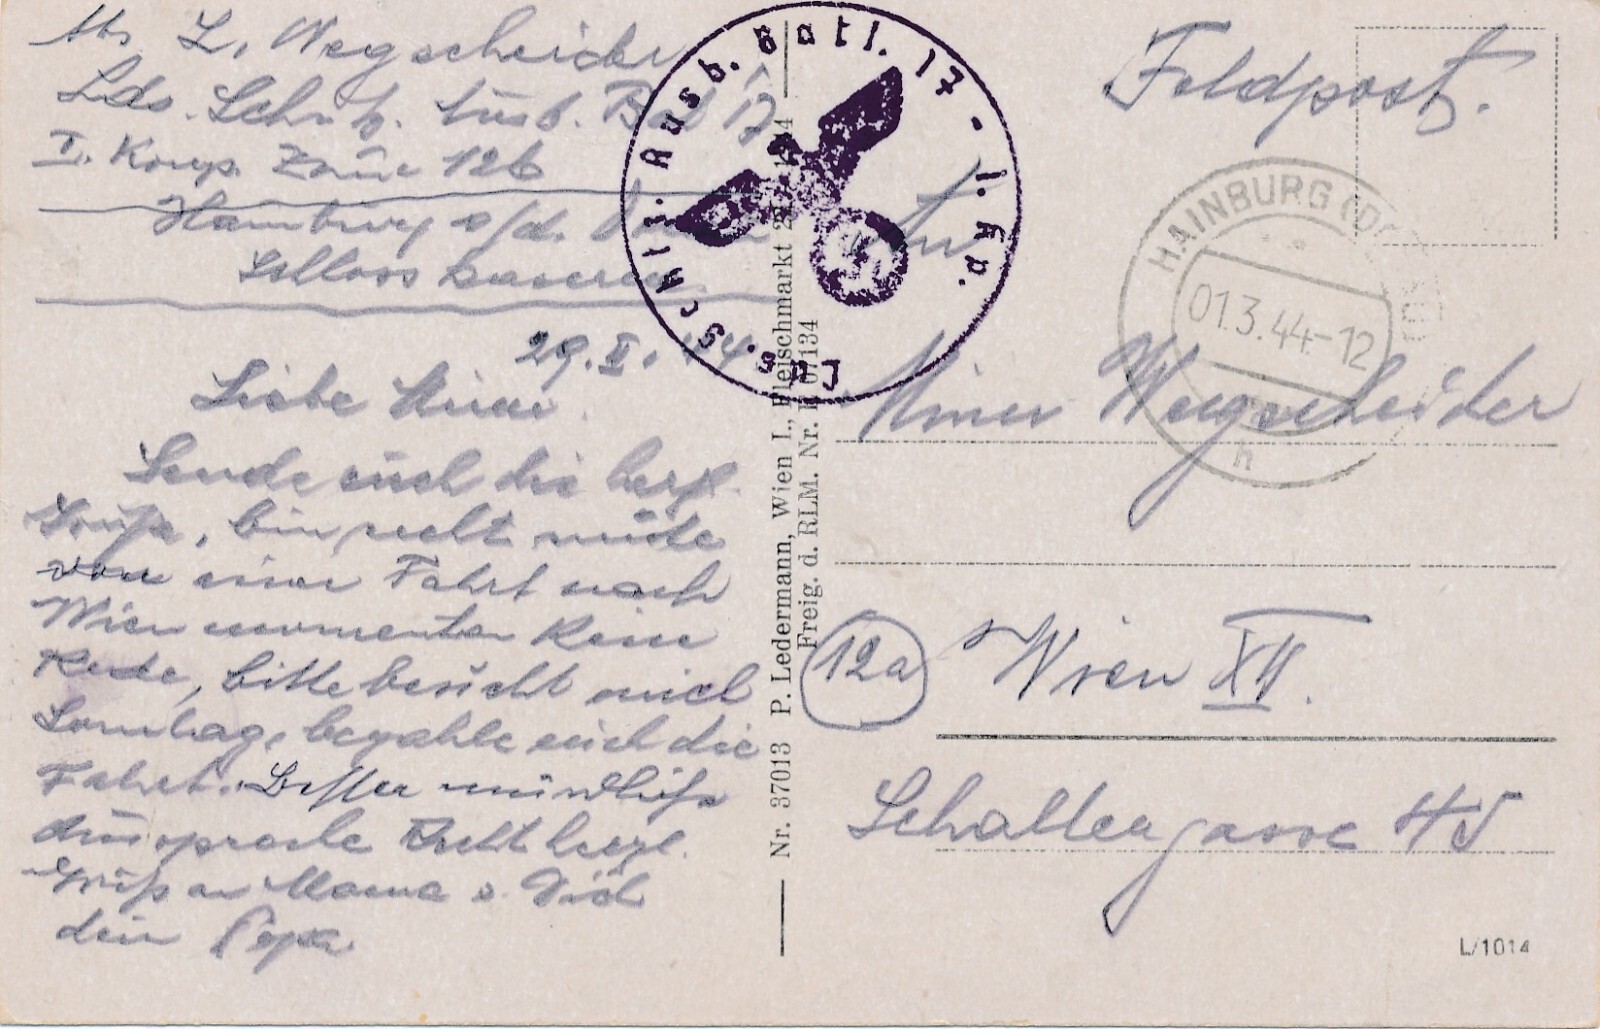 Abs L. Wegscheider
Lds. Schütz. Ausb. Batl 17
I. Komp. Zimmer 126
Hainburg a/d. Donau
Schloss Kaserne
29. II. 44.
Liebe Minna
Sende euch die herzl.
Grüße, bin recht müde
von einer Fahrt nach
Wien momentan keine
Rede, bitte besucht mich
Sonntag, bezahle euch die
Fahrt. Besser mündliche
Aussprache Recht herzl.
Grüße an Mama u. Dich
dein Papa
Lds. Schtz. Ausb. Batl. 17 - 1. Kp.
Nr. 37013 P. Ledermann, Wien I., Fleischmarkt
Freig. d. RLM. Nr.
Feldpost.
HAINBURG (DONAU)
01.3.44-12
h
An
Wegscheider
12a
Wien XII.
Schallergasse 45
L/1014